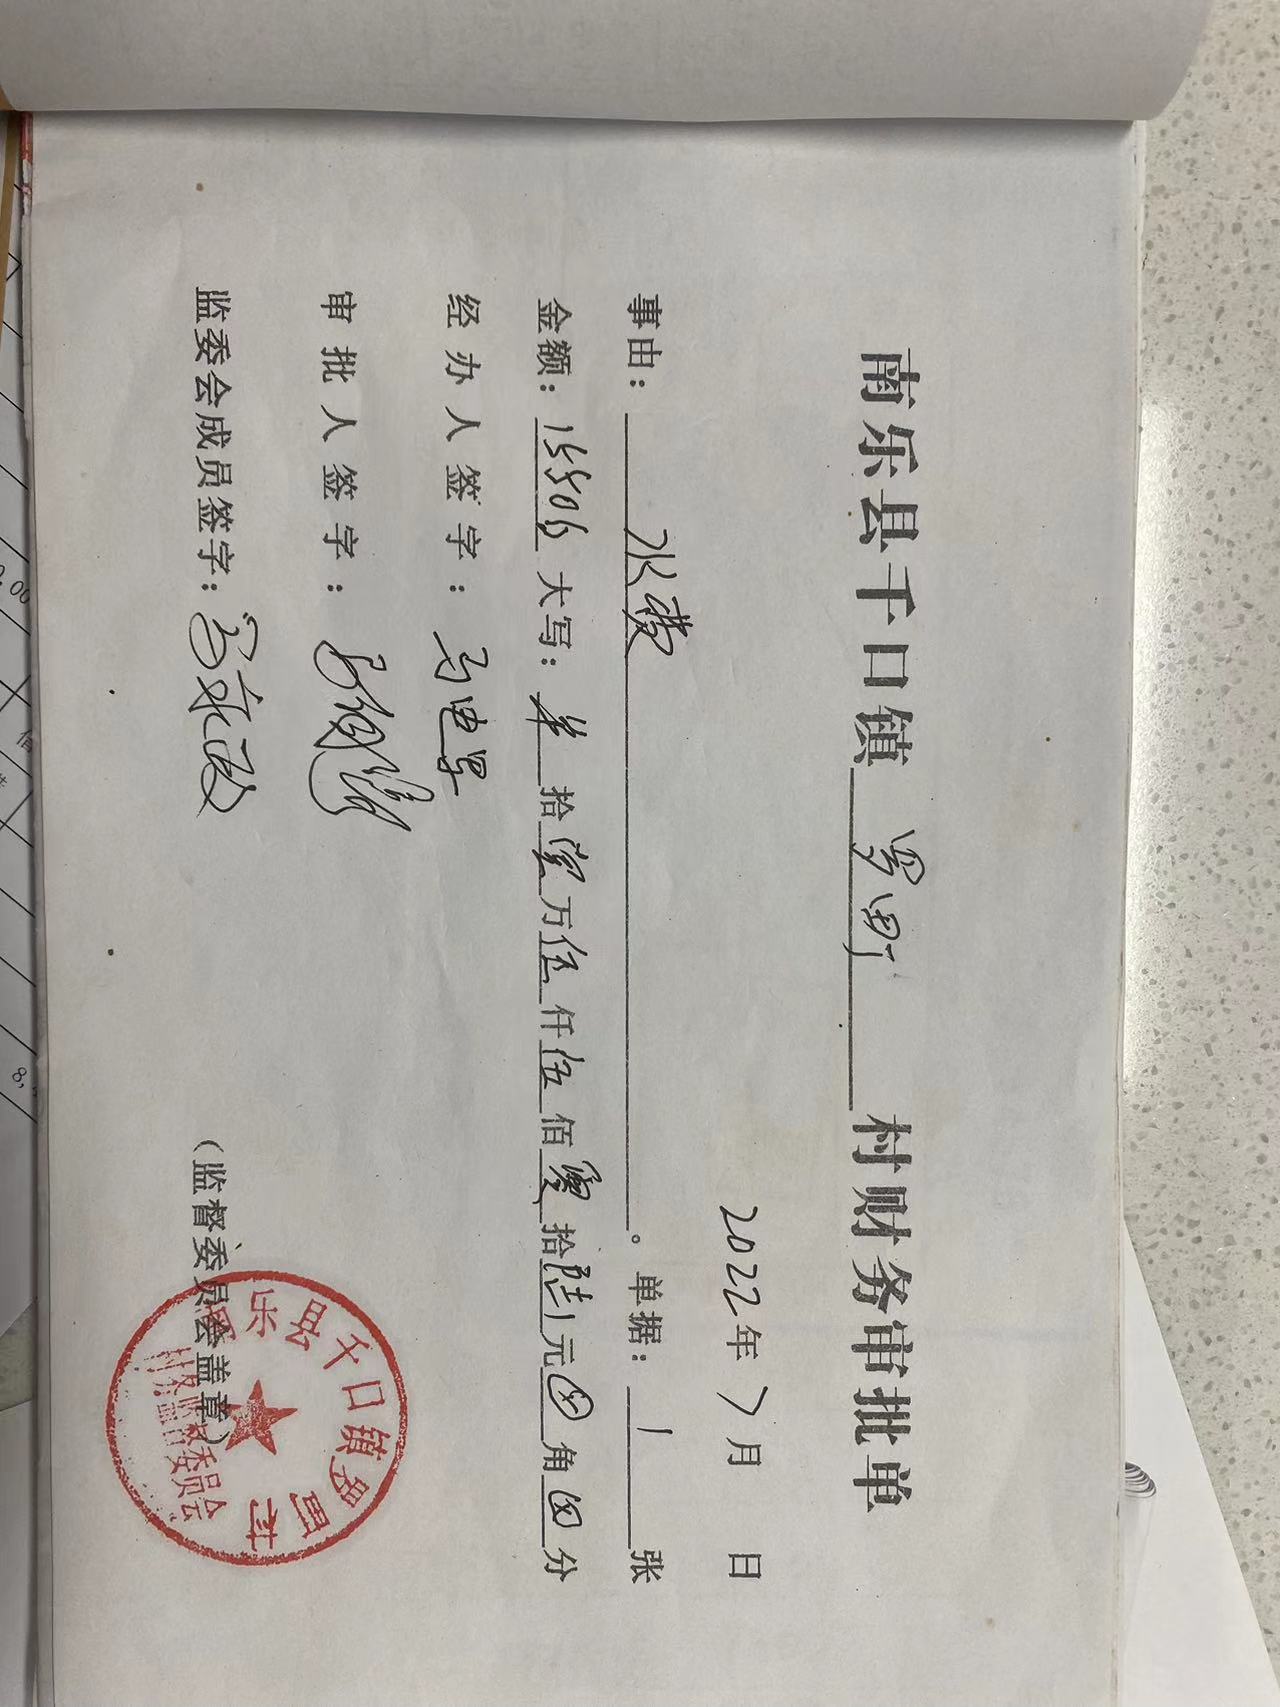 南乐县千口镇 罗町 村财务审批单
2022年7月 日
事由： 水费 。单据： 1 张
金额：15506 大写： 拾壹万伍仟伍佰零拾陆元⊗角⊗分
经办人签字：
审批人签字：
监委会成员签字：
（监督委员会盖章）
乐县千口镇罗町村
村务监督委员会